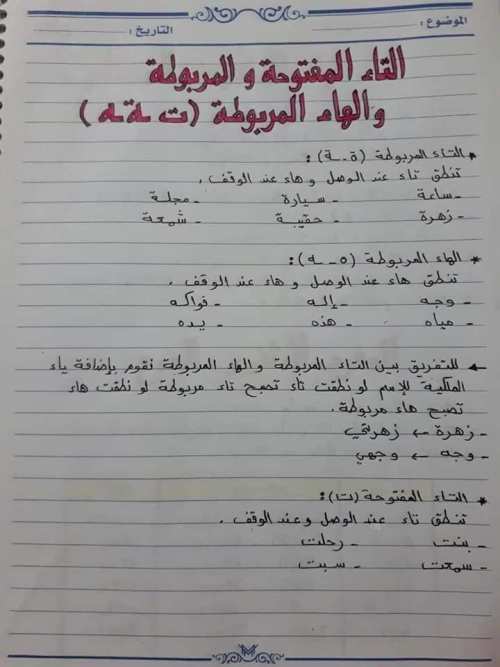 الموضوع:
التاريخ:
التاء المفتوحة و المربوطة
و الهاء المربوطة (ت ـة ـه)
* التاء المربوطة (ة ـ ـة):
تنطق تاء عند الوصل و هاء عند الوقف.
- ساعة - سيارة - مجلة
- زهرة - حقيبة - شمعة
* الهاء المربوطة (ه ـ ـه):
تنطق هاء عند الوصل و هاء عند الوقف.
- وجه - إله - فواكه
- مياه - هذه - يده
← للتفريق بين التاء المربوطة و الهاء المربوطة نقوم بإضافة ياء
الملكية للإسم لو نطقت تاء تصبح تاء مربوطة لو نطقت هاء
تصبح هاء مربوطة.
- زهرة ← زهرتي
- وجه ← وجهي
* التاء المفتوحة (ت):
تنطق تاء عند الوصل وعند الوقف.
- بنت - رحلت
- سمعت - سبت